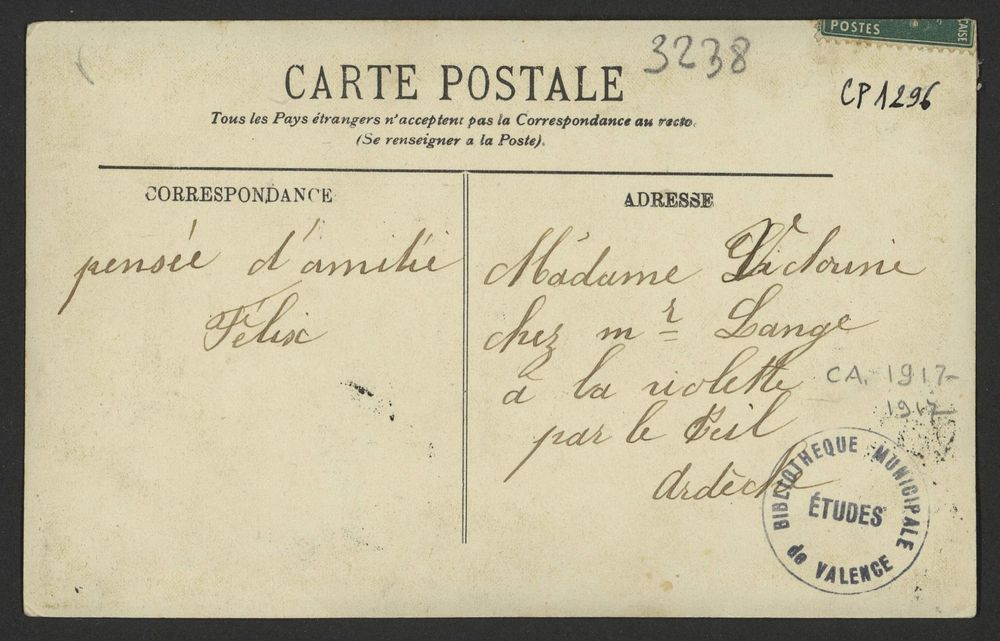 POSTES
3238
CARTE POSTALE
CP1296
Tous les Pays étrangers n'acceptent pas la Correspondance au recto.
(Se renseigner a la Poste).
CORRESPONDANCE
pensée d'amitié
Félix
ADRESSE
Madame Victorine
chez mr Lange
à la violette
par le Teil
Ardèche
CA. 1917-
1917
BIBLIOTHEQUE MUNICIPALE
ÉTUDES
de VALENCE